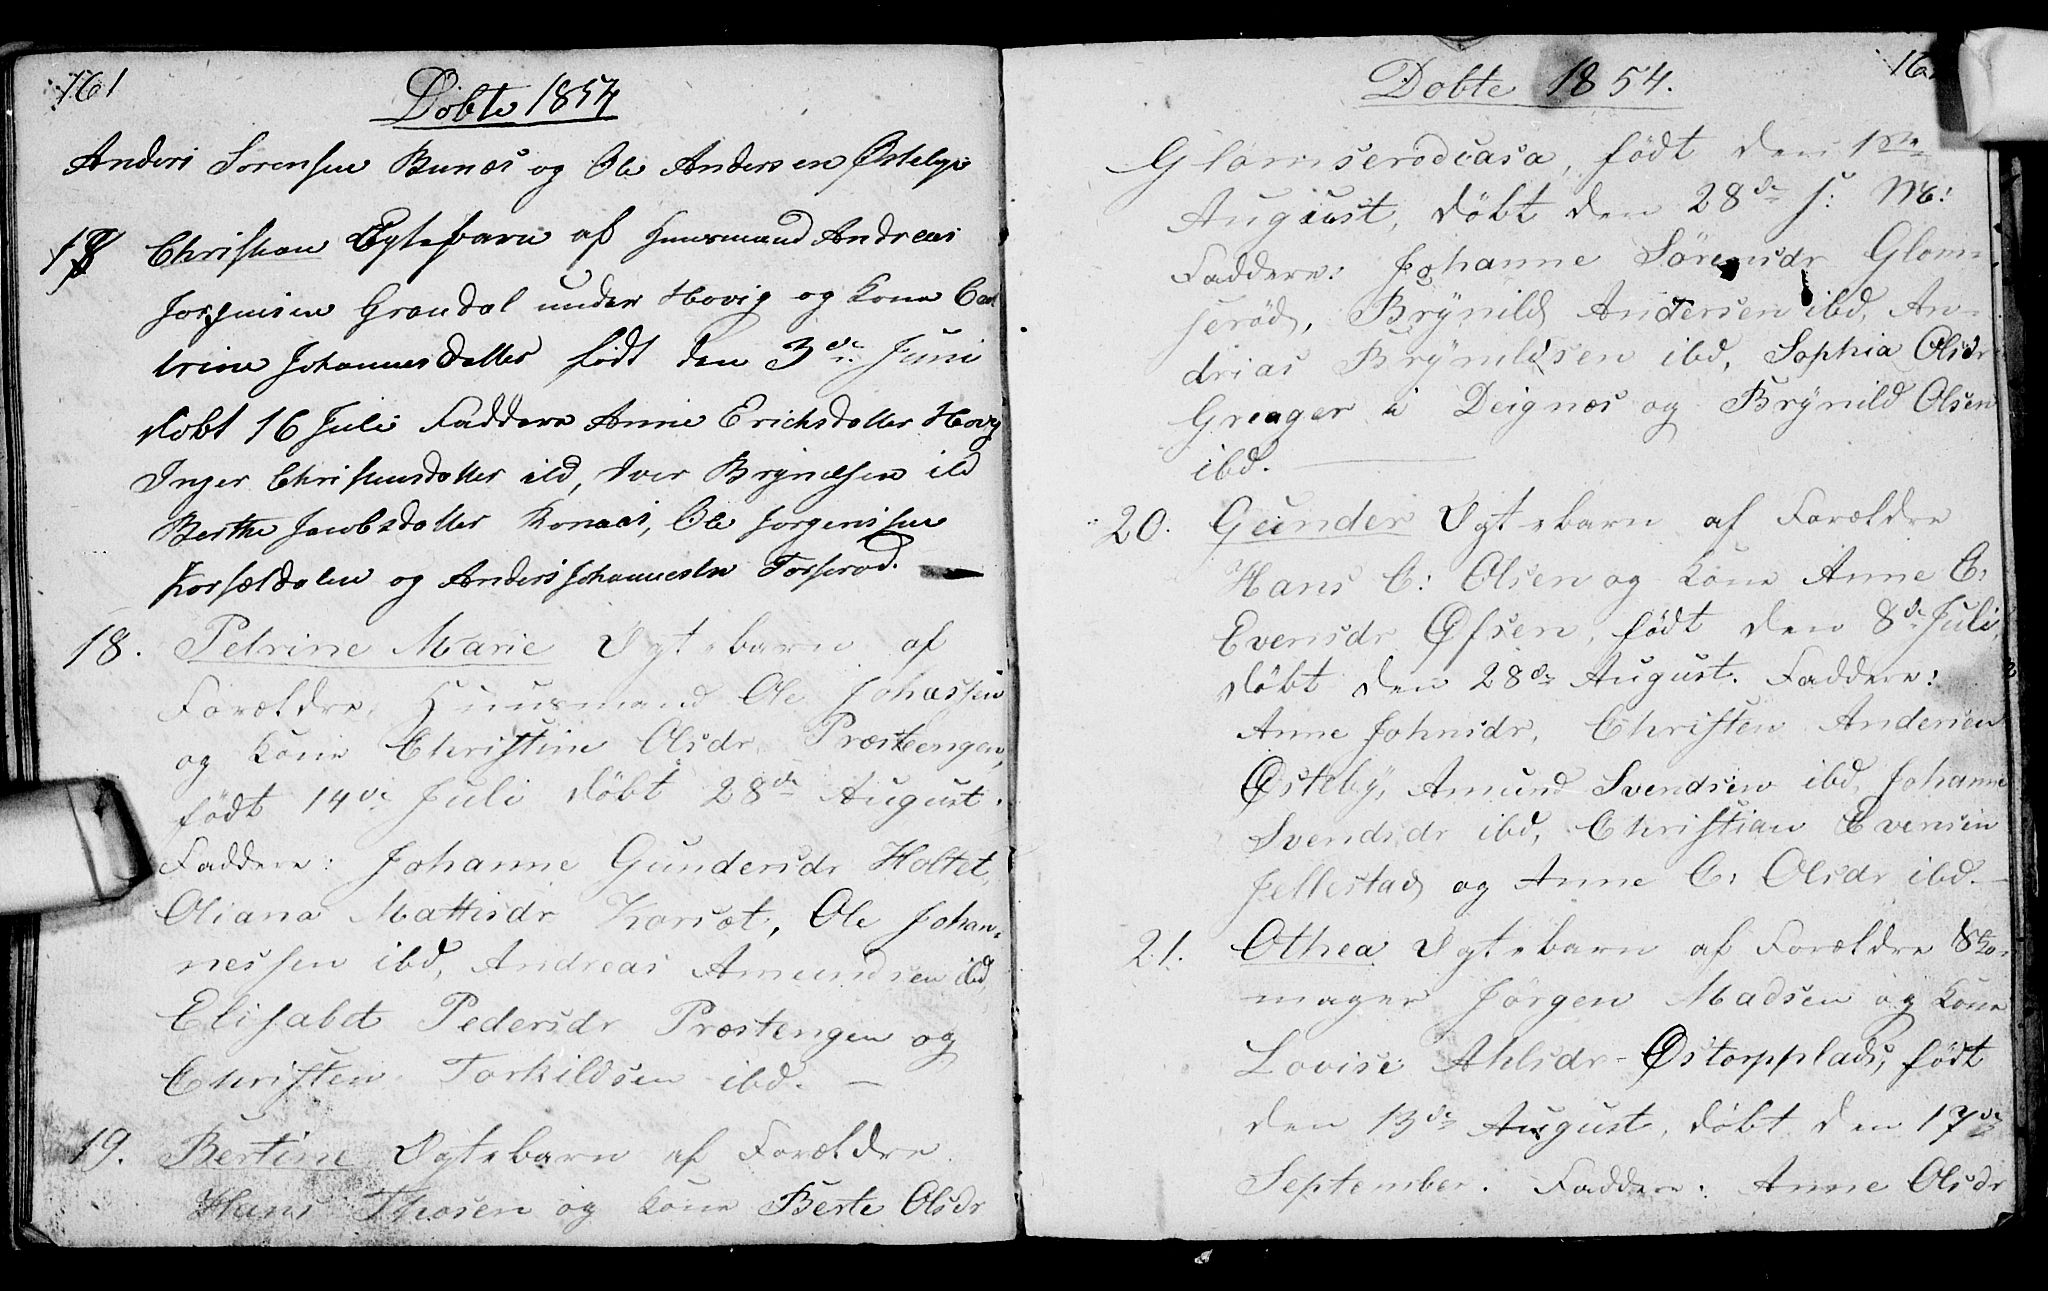 161
Døbte 1854
Anders Sørensen Bunæs og Ole Andersen Østeby
17 Christian Egtebarn af Huusmand Andreas
Jørgensen Grandal under Hovig og Kone Ca
trine Johannesdatter født den 3de Juni
døbt 16 Juli Faddere Anne Erichsdatter Hovig
Inger Christensdatter ibd, Iver Brynildsen ibd
Berthe Jacobsdatter Konaas, Ole Jørgenssen
Korsætdalen og Anders Johannesen Torserød.
18. Petrine Marie Ægtebarn af
Forældre, Huusmand Ole Johassen
og Kone Christine Olsdr Præsteengen,
født 14de Juli døbt 28de August.
Faddere: Johanne Gundersdr Holtet,
Oliana Mattisdr Korsæt, Ole Johan-
nessen ibd, Andreas Amundsen ibd
Elisabet Pedersdr Præstengen og
Christen Torkildsen ibd. —
19. Bertine Ægtebarn af Forældre
Hans Thosen og Kone Berte Olsdr
Døbte 1854.
16
Glomserødcasa, født den 1ste
August, døbt den 28de s: M:
Faddere: Johanne Sørensdr Glom-
serød, Brynild Andersen ibd, An-
drias Brynildsen ibd, Sophia Olsdr
Greager i Deignæs og Brynild Olsen
ibd. —
20. Gunder Ægtebarn af Forældre
Hans C: Olsen og Kone Anne C:
Evensdr Øfsen, født den 8de Juli,
døbt den 28de August. Faddere:
Anne Johnsdr, Christen Andersen
Østeby, Amund Svendsen ibd, Johanne
Svendsdr ibd, Christian Evensen
Jellestad og Anne C: Olsdr ibd. —
21. Othea Ægtebarn af Forældre Sko-
mager Jørgen Madsen og Kone
Lovise Ahlsdr Østorpplads, født
den 13de August, døbt den 17de
September. Faddere: Anne Olsdr